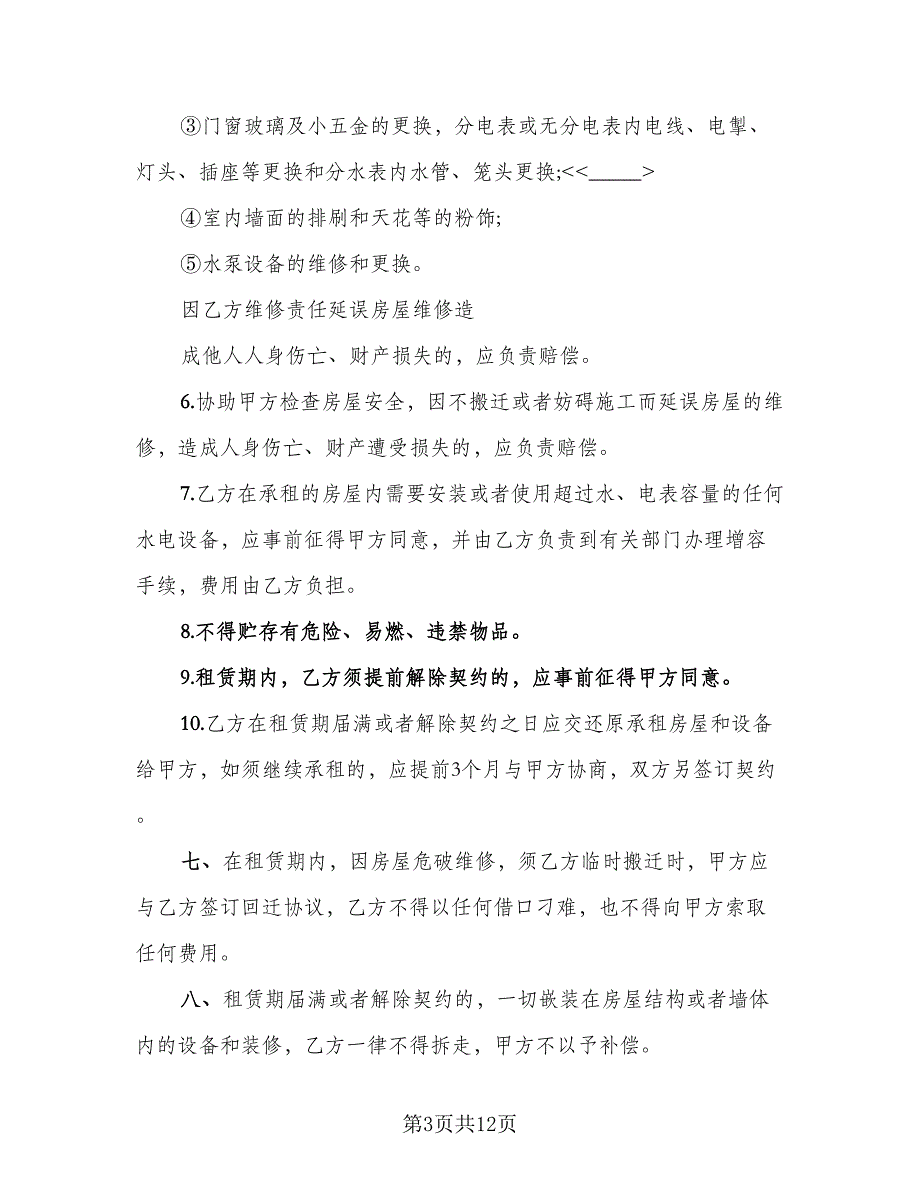 ③门窗玻璃及小五金的更换，分电表或无分电表内电线、电掣、
灯头、插座等更换和分水表内水管、笼头更换;<<_____>
④室内墙面的排刷和天花等的粉饰;
⑤水泵设备的维修和更换。
因乙方维修责任延误房屋维修造
成他人人身伤亡、财产损失的，应负责赔偿。
6.协助甲方检查房屋安全，因不搬迁或者妨碍施工而延误房屋的维
修，造成人身伤亡、财产遭受损失的，应负责赔偿。
7.乙方在承租的房屋内需要安装或者使用超过水、电表容量的任何
水电设备，应事前征得甲方同意，并由乙方负责到有关部门办理增容
手续，费用由乙方负担。
8.不得贮存有危险、易燃、违禁物品。
9.租赁期内，乙方须提前解除契约的，应事前征得甲方同意。
10.乙方在租赁期届满或者解除契约之日应交还原承租房屋和设备
给甲方，如须继续承租的，应提前3个月与甲方协商，双方另签订契约
。
七、在租赁期内，因房屋危破维修，须乙方临时搬迁时，甲方应
与乙方签订回迁协议，乙方不得以任何借口刁难，也不得向甲方索取
任何费用。
八、租赁期届满或者解除契约的，一切嵌装在房屋结构或者墙体
内的设备和装修，乙方一律不得拆走，甲方不以予补偿。
第3页共12页